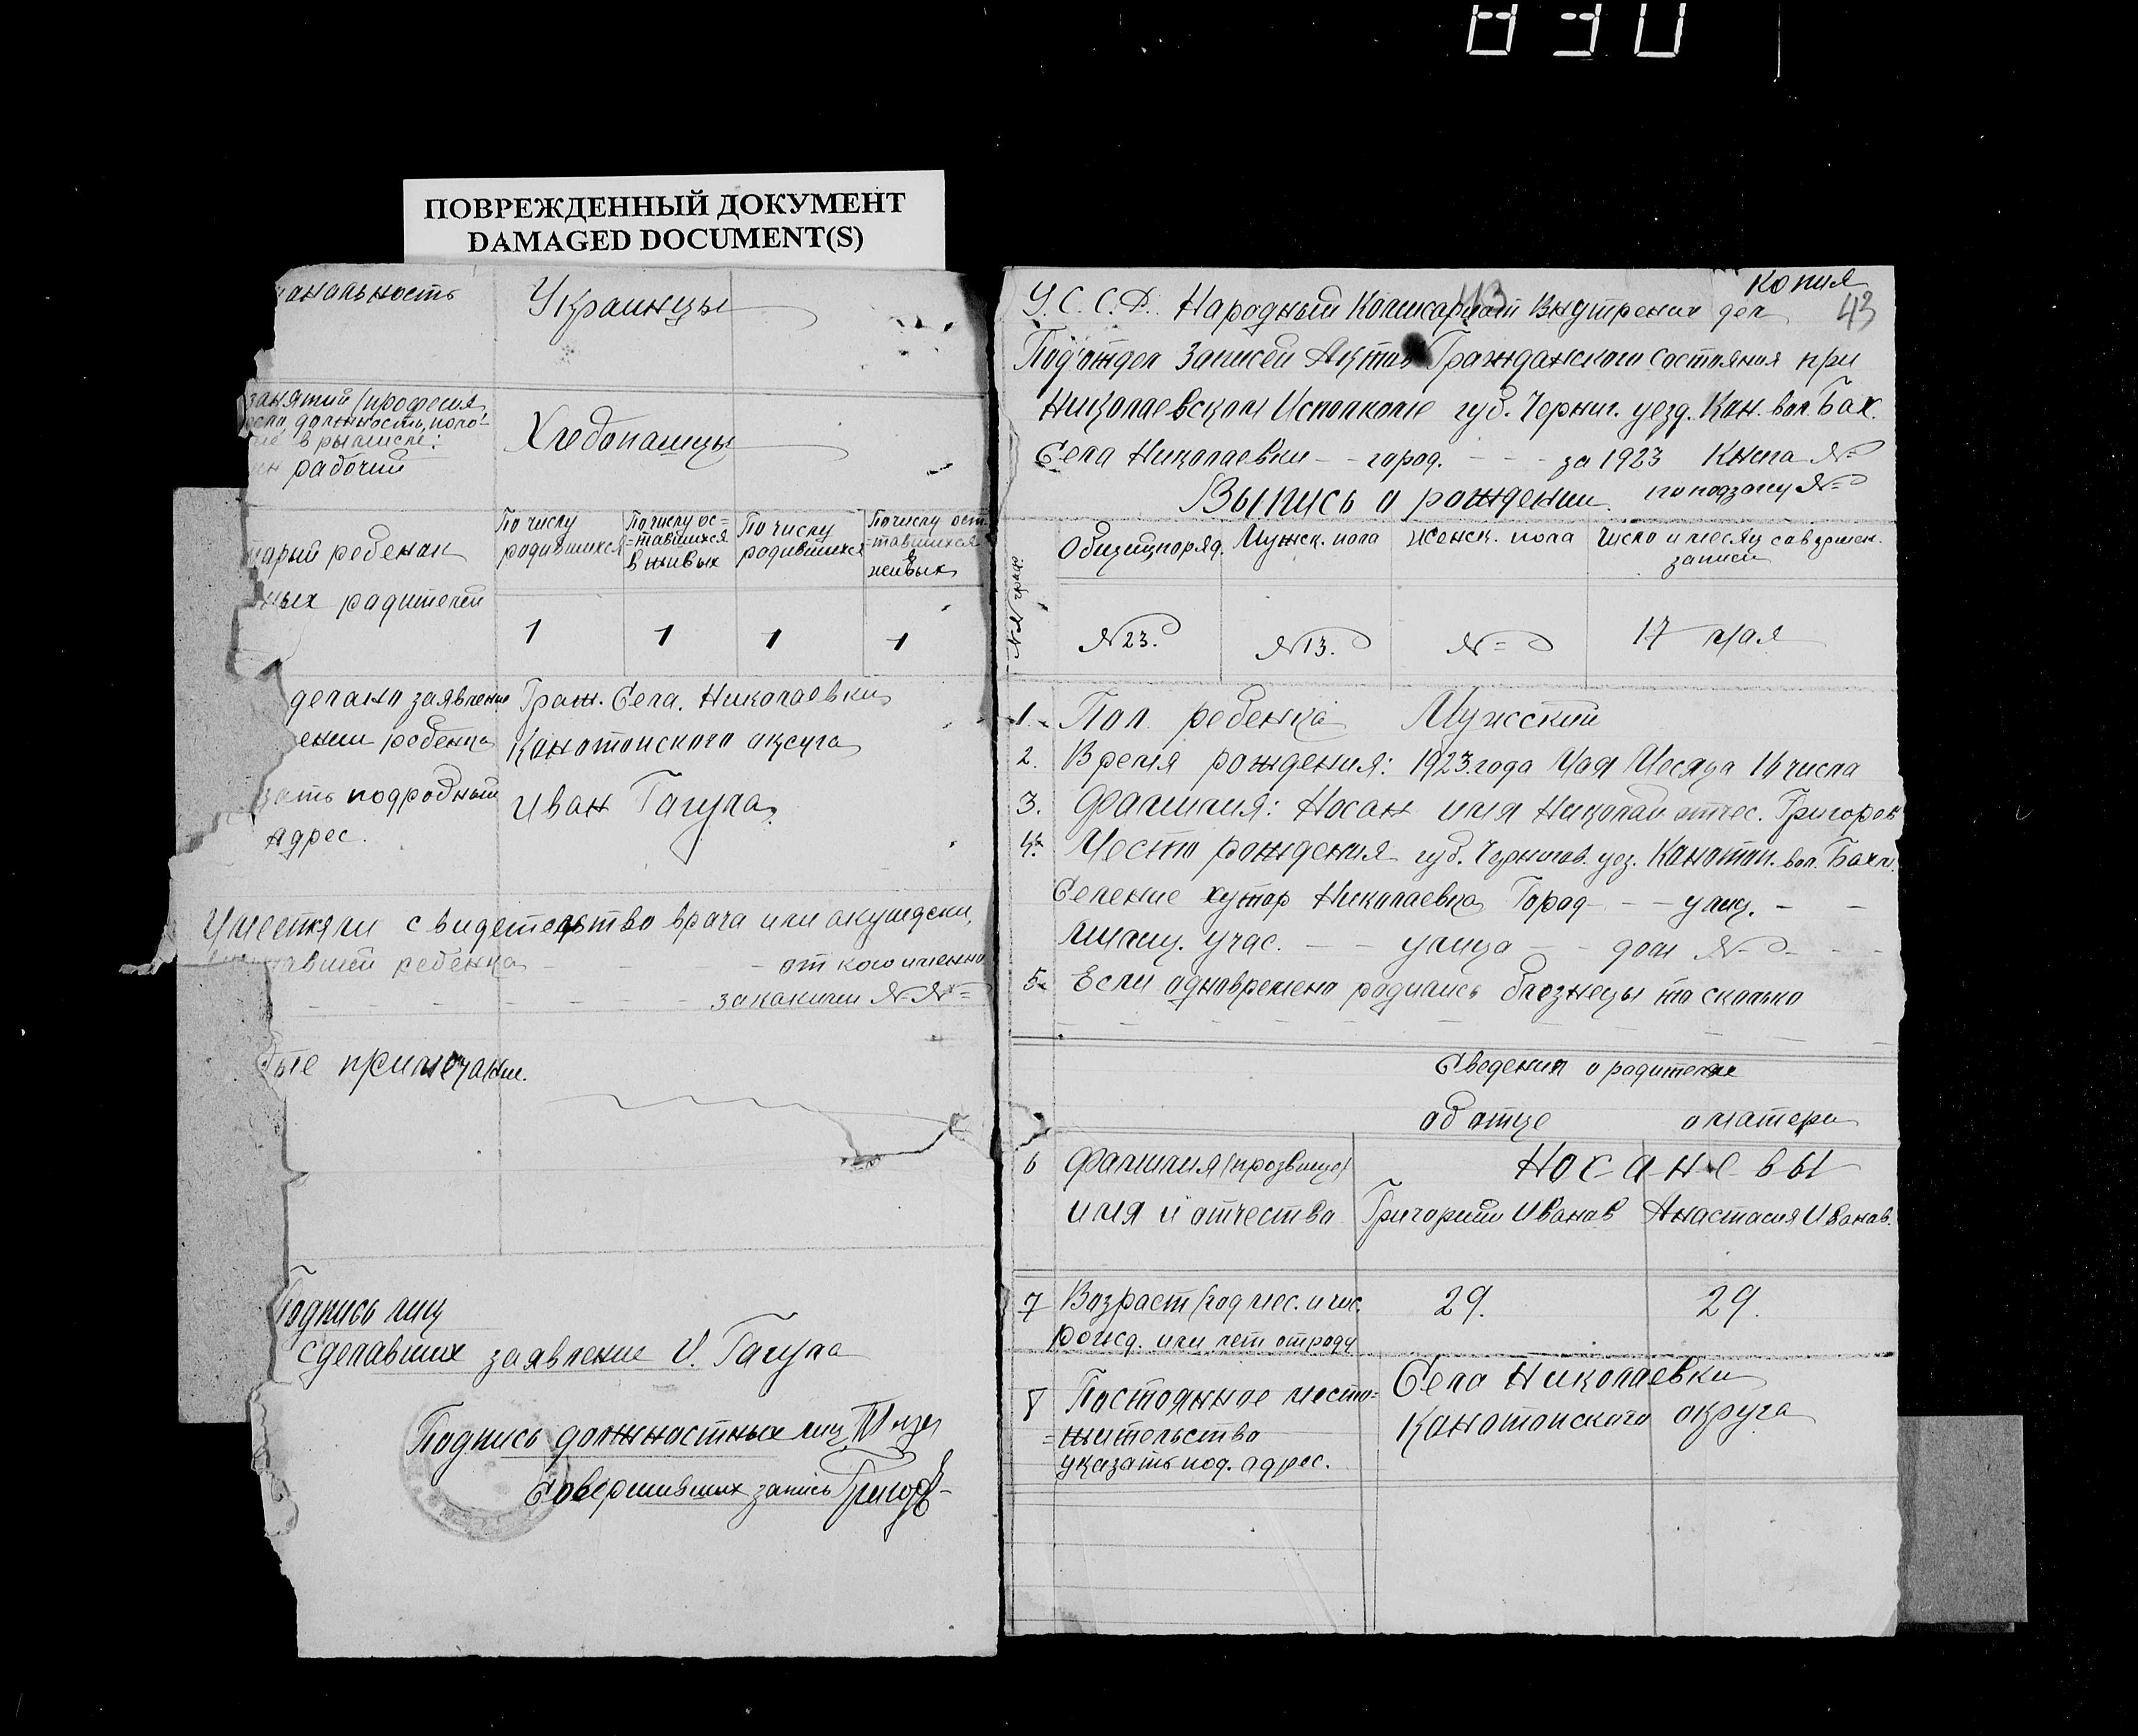 830
ПОВРЕЖДЕННЫЙ ДОКУМЕНТ
DAMAGED DOCUMENT(S)
анальность Украинцы
занятий (професия,
должность, поло-
в рымысле:
рабочий
Хлебопашцы
ребенок
ных родителей
По числу родившихся
По числу ос=тавшихся в живых
По числу родившихся
По числу ост=тавшихся в живых
1 1 1 1
делано заявление Граж. Села. Николаевки
ении ребенца Канотопского округа
зать подробный Иван Гагула
Адрес.
свидетельство врача или акушерки,
авшей ребенка - - - от кого именно
- - - - - - за какими №№ =
ые примечания.
Подпись лиц
сделавших заявление И. Гагула
Подпись должностных лиц
Совершивших запись
Копия
43
43
У.С.С.Р. Народный Комисариат Внутрених дел
Подотдел Записей Актов Гражданского состояния при
Николаевском Исполкоме губ. Черниг. уезд. Кан. вол. Бах.
Села Николаевки - - город. - - - за 1923 Книга №=
Выпись о рождении по подзагу №=
№№ граф.
Общий поряд. Мужск. пола Женск. пола Число и месяц совершен. записи
№23. №13. №= 17 мая
1. Пол ребенка Мужский
2. Время рождения: 1923 года Мая Месяца 16 числа
3. Фамилия: Носан имя Николай отчес. Григоров
4. Место рождения губ. Чернигов. уез. Канотоп. вол. Бахм.
Селение хутор Николаевка Город - - улиц. - -
Милиц. учас. - - улица - - дом № - -
5. Если одновремено родились близнецы то сколько
Сведения о родителях
об отце о матери
6 Фамилия (прозвище) Носаневы
имя и отчество Григорий Иванов Анастасия Иванов.
7 Возраст (год мес. и чис. 29. 29.
рожд. или лет отроду
8 Постоянное место= Села Николаевки
=жительство Канотопского округа
указать под. адрес.